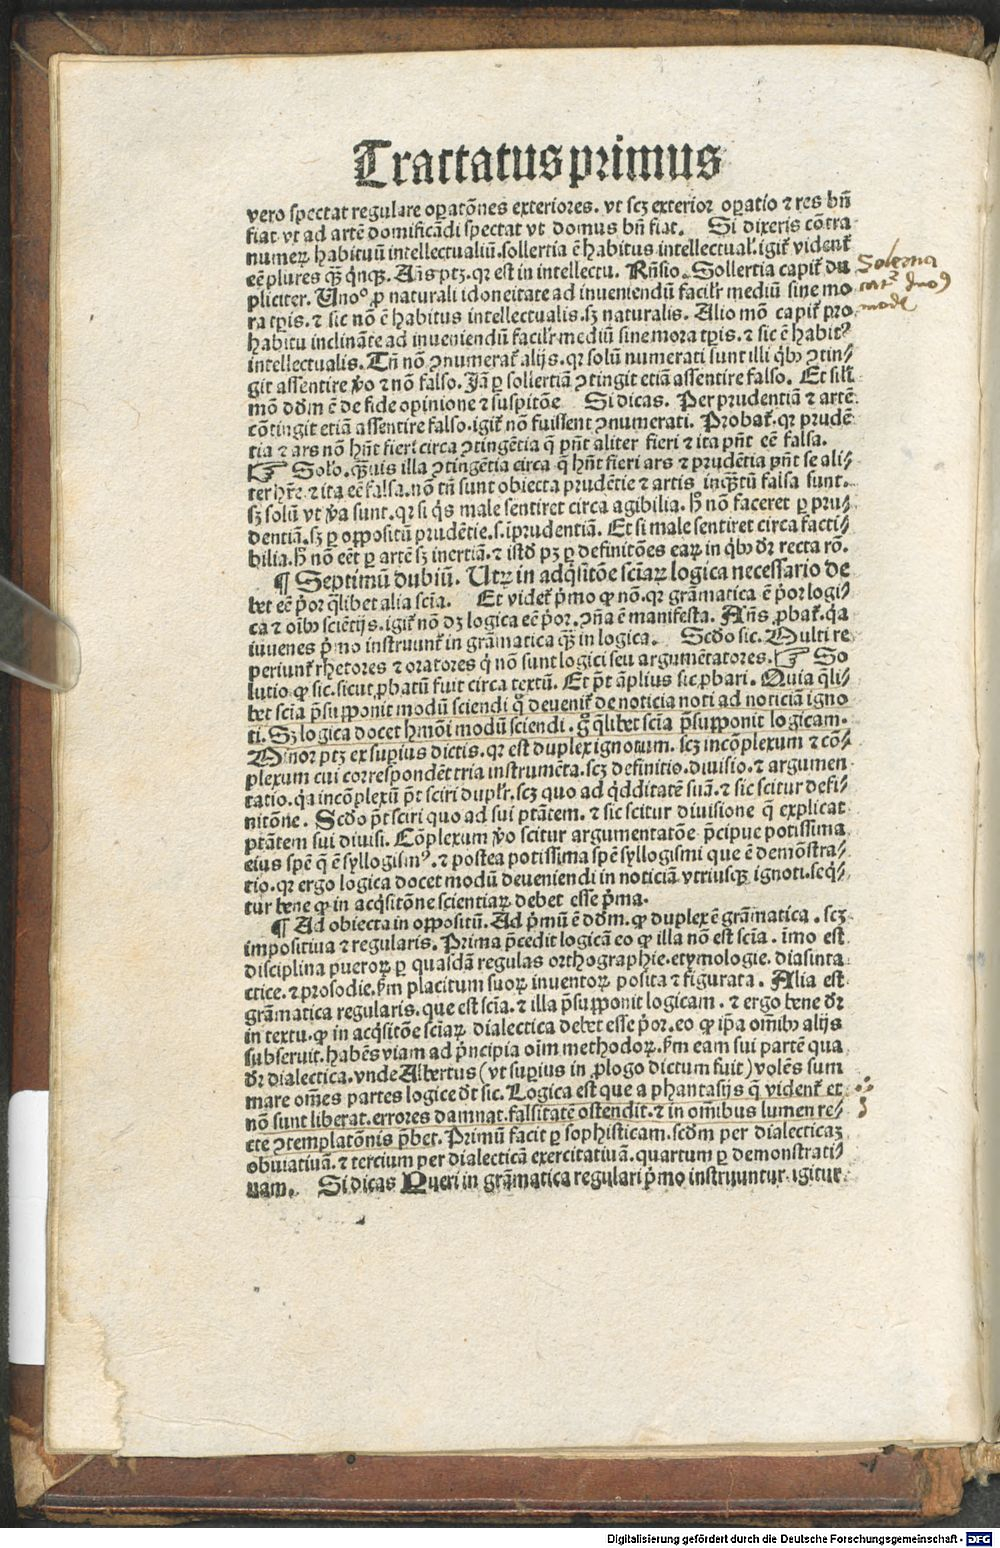 Tractatus primus
vero spectat regulare oꝑatōnes exteriores. vt scꝫ exterior oꝑatio ⁊ res bn̄
fiat vt ad artē domificādi spectat vt domus bn̄ fiat. Si dixeris cōtra
numeꝝ habituū intellectualiū. sollertia ē habitus intellectual'. igit͛ vident͛
eē plures qꝫ̄ q̇nqꝫ. An̄s ptꝫ. qꝛ est in intellectu. Rn̄sio. Sollertia capit͛ du
pliciter. Uno° ꝓ naturali idoneitate ad inveniendū facilr̄ mediū sine mo
ra tꝑis. ⁊ sic nō ē habitus intellectualis. sꝫ naturalis. Alio mō capit͛ pro
habitu inclināte ad inveniendū facilr̄ mediū sine mora tꝑis. ⁊ sic ē habitꝰ
intellectualis. Tn̄ nō ꝯnumerat͛ alijs. qꝛ solū numerati sunt illi q̇bꝰ ꝯtin⸗
git assentire v̄o ⁊ nō falso. Jā ꝑ sollertiā ꝯtingit etiā assentire falso. Et sil'i
mō dd̄m ē de fide opinione ⁊ suspitōe Si dicas. Per prudentiā ⁊ artē
cōtingit etiā assentire falso. igit͛ nō fuissent ꝯnumerati. Probat͛. qꝛ prudē
tia ⁊ ars nō hn̄t fieri circa ꝯtingētia q̄ pn̄t aliter fieri ⁊ ita pn̄t eē falsa.
☞ Solo. qꝫ̄uis illa ꝯtingētia circa q̄ hn̄t fieri ars ⁊ prudētia pn̄t se ali⸗
ter hr̄e ⁊ ita eē falsa. nō tn̄ sunt obiecta prudētie ⁊ artis inqꝫ̄tū falsa sunt.
sꝫ solū vt v̄a sunt. qꝛ si q̇s male sentiret circa agibilia. h̄ nō faceret ꝑ pru⸗
dentiā. sꝫ ꝑ oppositū prudētie. s. īprudentiā. Et si male sentiret circa facti⸗
bilia. h̄ nō eēt ꝑ artē sꝫ inertiā. ⁊ istd̄ pꝫ ꝑ definitōes eaꝝ in q̇bꝰ dr̄ recta rō.
¶ Septimū dubiū. Utꝝ in adq̇sitōe sciaꝝ logica necessario de
bet eē p̄or qꝉibet alia scīa. Et videt͛ p̄mo ꝙ nō. qꝛ grāmatica ē p̄or logi⸗
ca ⁊ oībꝰ sciētijs. igit͛ nō dꝫ logica eē p̄or. ꝯn̄a ē manifesta. An̄s ꝓbat͛. q̇a
iuvenes p̄mo instruunt͛ in grāmatica qꝫ̄ in logica. Scd̄o sic. Multi re
periunt͛ rhetores ⁊ oratores q̇ nō sunt logici seu argumētatores. ☞ So
lutio ꝙ sic. sicut ꝓbatū fuit circa textū. Et p̄t āplius sic ꝓbari. Quia qꝉi⸗
bet scīa p̄supponit modū sciendi qͦ devenit͛ de noticia noti ad noticiā igno
ti. Sꝫ logica docet hmōi modū sciendi. gͦ qꝉibet scīa p̄supponit logicam.
Minor ptꝫ ex superius dictis. qꝛ est duplex ignotum. scꝫ incōplexum ⁊ cō⸗
plexum cui correspondēt tria instrumēta. scꝫ definitio. divisio. ⁊ argumen
tatio. q̇a incōplexū p̄t sciri duplr̄. scꝫ quo ad q̇dditatē suā. ⁊ sic scitur defi⸗
nitōne. Scd̄o p̄t sciri quo ad sui ptātem. ⁊ sic scitur divisione q̄ explicat
ptātem sui divisi. Cōplexum v̄o scitur argumentatōe p̄cipue potissima
eius spē q̄ ē syllogismꝰ. ⁊ postea potissima spē syllogismi que ē demōstra⸗
tio. qꝛ ergo logica docet modū deveniendi in noticiā vtriusqꝫ ignoti. seq̇⸗
tur bene ꝙ in acq̇sitōne scientiaꝝ debet esse p̄ma.
¶ Ad obiecta in oppositū. Ad p̄mū ē dd̄m. ꝙ duplex ē grāmatica. scꝫ
impositiva ⁊ regularis. Prima p̄cedit logicā eo ꝙ illa nō est scīa. īmo est
disciplina pueroꝝ ꝑ quasdā regulas orthographie. etymologie. diasinta
ctice. ⁊ prosodie. ẜm placitum suoꝝ inventoꝝ posita ⁊ figurata. Alia est
grāmatica regularis. que est scīa. ⁊ illa p̄supponit logicam. ⁊ ergo bene dr̄
in textu. ꝙ in acq̇sitōe sciaꝝ dialectica debet esse p̄or. eo ꝙ ip̄a om̄ibꝰ alijs
subservit. habēs viam ad p̄ncipia oīm methodoꝝ. ẜm eam sui partē qua
dr̄ dialectica. vnde Albertus (vt superius in ꝓlogo dictum fuit) volēs sum
mare om̄es partes logice dt̄ sic. Logica est que a phantasijs q̄ vident͛ et
nō sunt liberat. errores damnat. falsitatē ostendit. ⁊ in om̄ibus lumen re⸗
cte ꝯtemplatōnis p̄bet. Primū facit ꝑ sophisticam. scd̄m per dialecticaꝫ
obviativā. ⁊ tercium per dialecticā exercitativā. quartum ꝑ demonstrati⸗
vam. Si dicas Pueri in grāmatica regulari p̄mo instruuntur. igitur
Digitalisierung gefördert durch die Deutsche Forschungsgemeinschaft - DFG